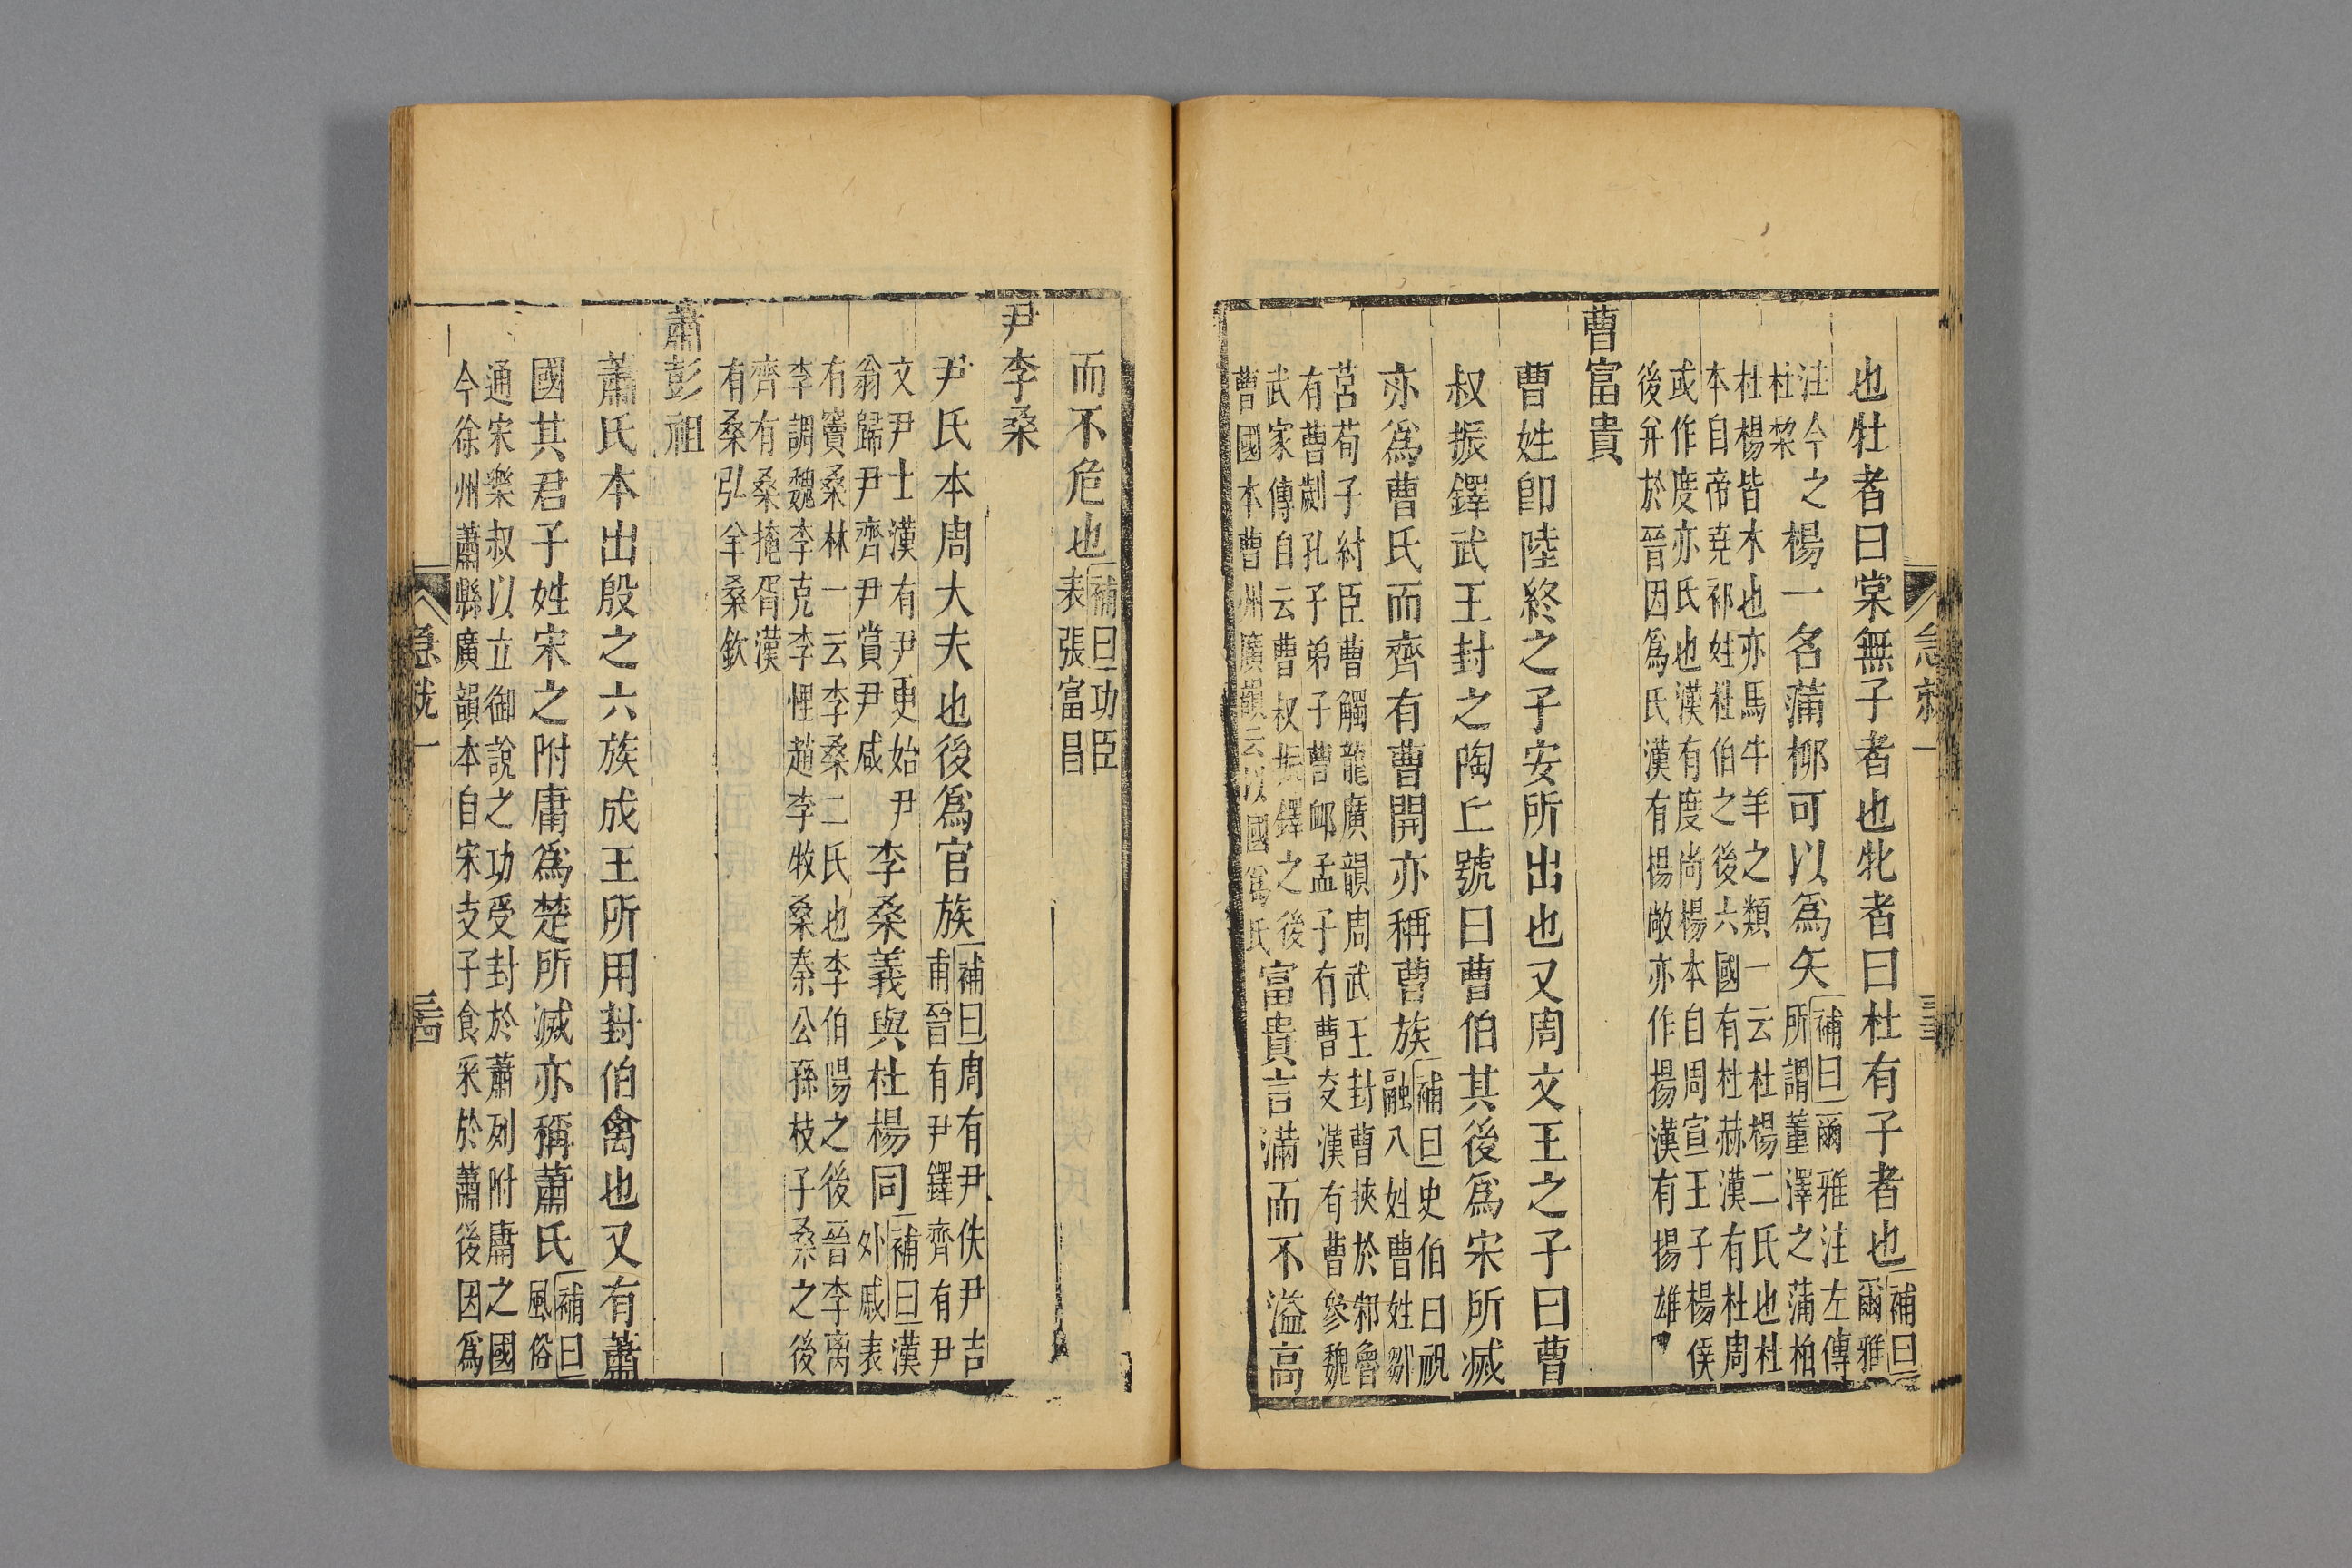 也牡者曰棠無子者也牝者曰杜有子者也補曰
爾雅
注今之楊一名蒲桺可以爲矢補曰爾雅注左傳
杜棃所謂董澤之蒲柏
杜楊皆木也亦馬牛羊之類一云杜楊二氏也杜
本自帝堯祁姓杜伯之後六國有杜赫漢有杜周
或作度亦氏也漢有度尚楊本自周宣王子楊侯
後并於晉因爲氏漢有楊敞亦作揚漢有揚雄
曹富貴
曹姓卽陸終之子安所出也又周文王之子曰曹
叔振鐸武王封之陶丘號曰曹伯其後爲宋所滅
亦爲曹氏而齊有曹開亦稱曹族補曰史伯曰祝
融八姓曹姓鄒
莒荀子紂臣曹觸龍廣韻周武王封曹挾於邾魯
有曹劌孔子弟子曹卹孟子有曹交漢有曹參魏
武家傳自云曹叔振鐸之後
曹國本曹州廣韻云以國爲氏富貴言滿而不溢高
急就一
而不危也補曰功臣
表張富昌
尹李桑
尹氏本周大夫也後爲官族補曰周有尹佚尹吉
甫晉有尹鐸齊有尹
文尹士漢有尹更始尹
翁歸尹齊尹賞尹咸李桑義與杜楊同補曰漢
外戚表
有竇桑林一云李桑二氏也李伯陽之後晉李离
李調魏李克李悝趙李牧桑秦公孫枝子桑之後
齊有桑掩胥漢
有桑弘羊桑欽
蕭彭祖
蕭氏本出殷之六族成王所用封伯禽也又有蕭
國其君子姓宋之附庸爲楚所滅亦稱蕭氏補曰
風俗
通宋樂叔以立御說之功受封於蕭列附庸之國
今徐州蕭縣廣韻本自宋支子食采於蕭後因爲
急就一